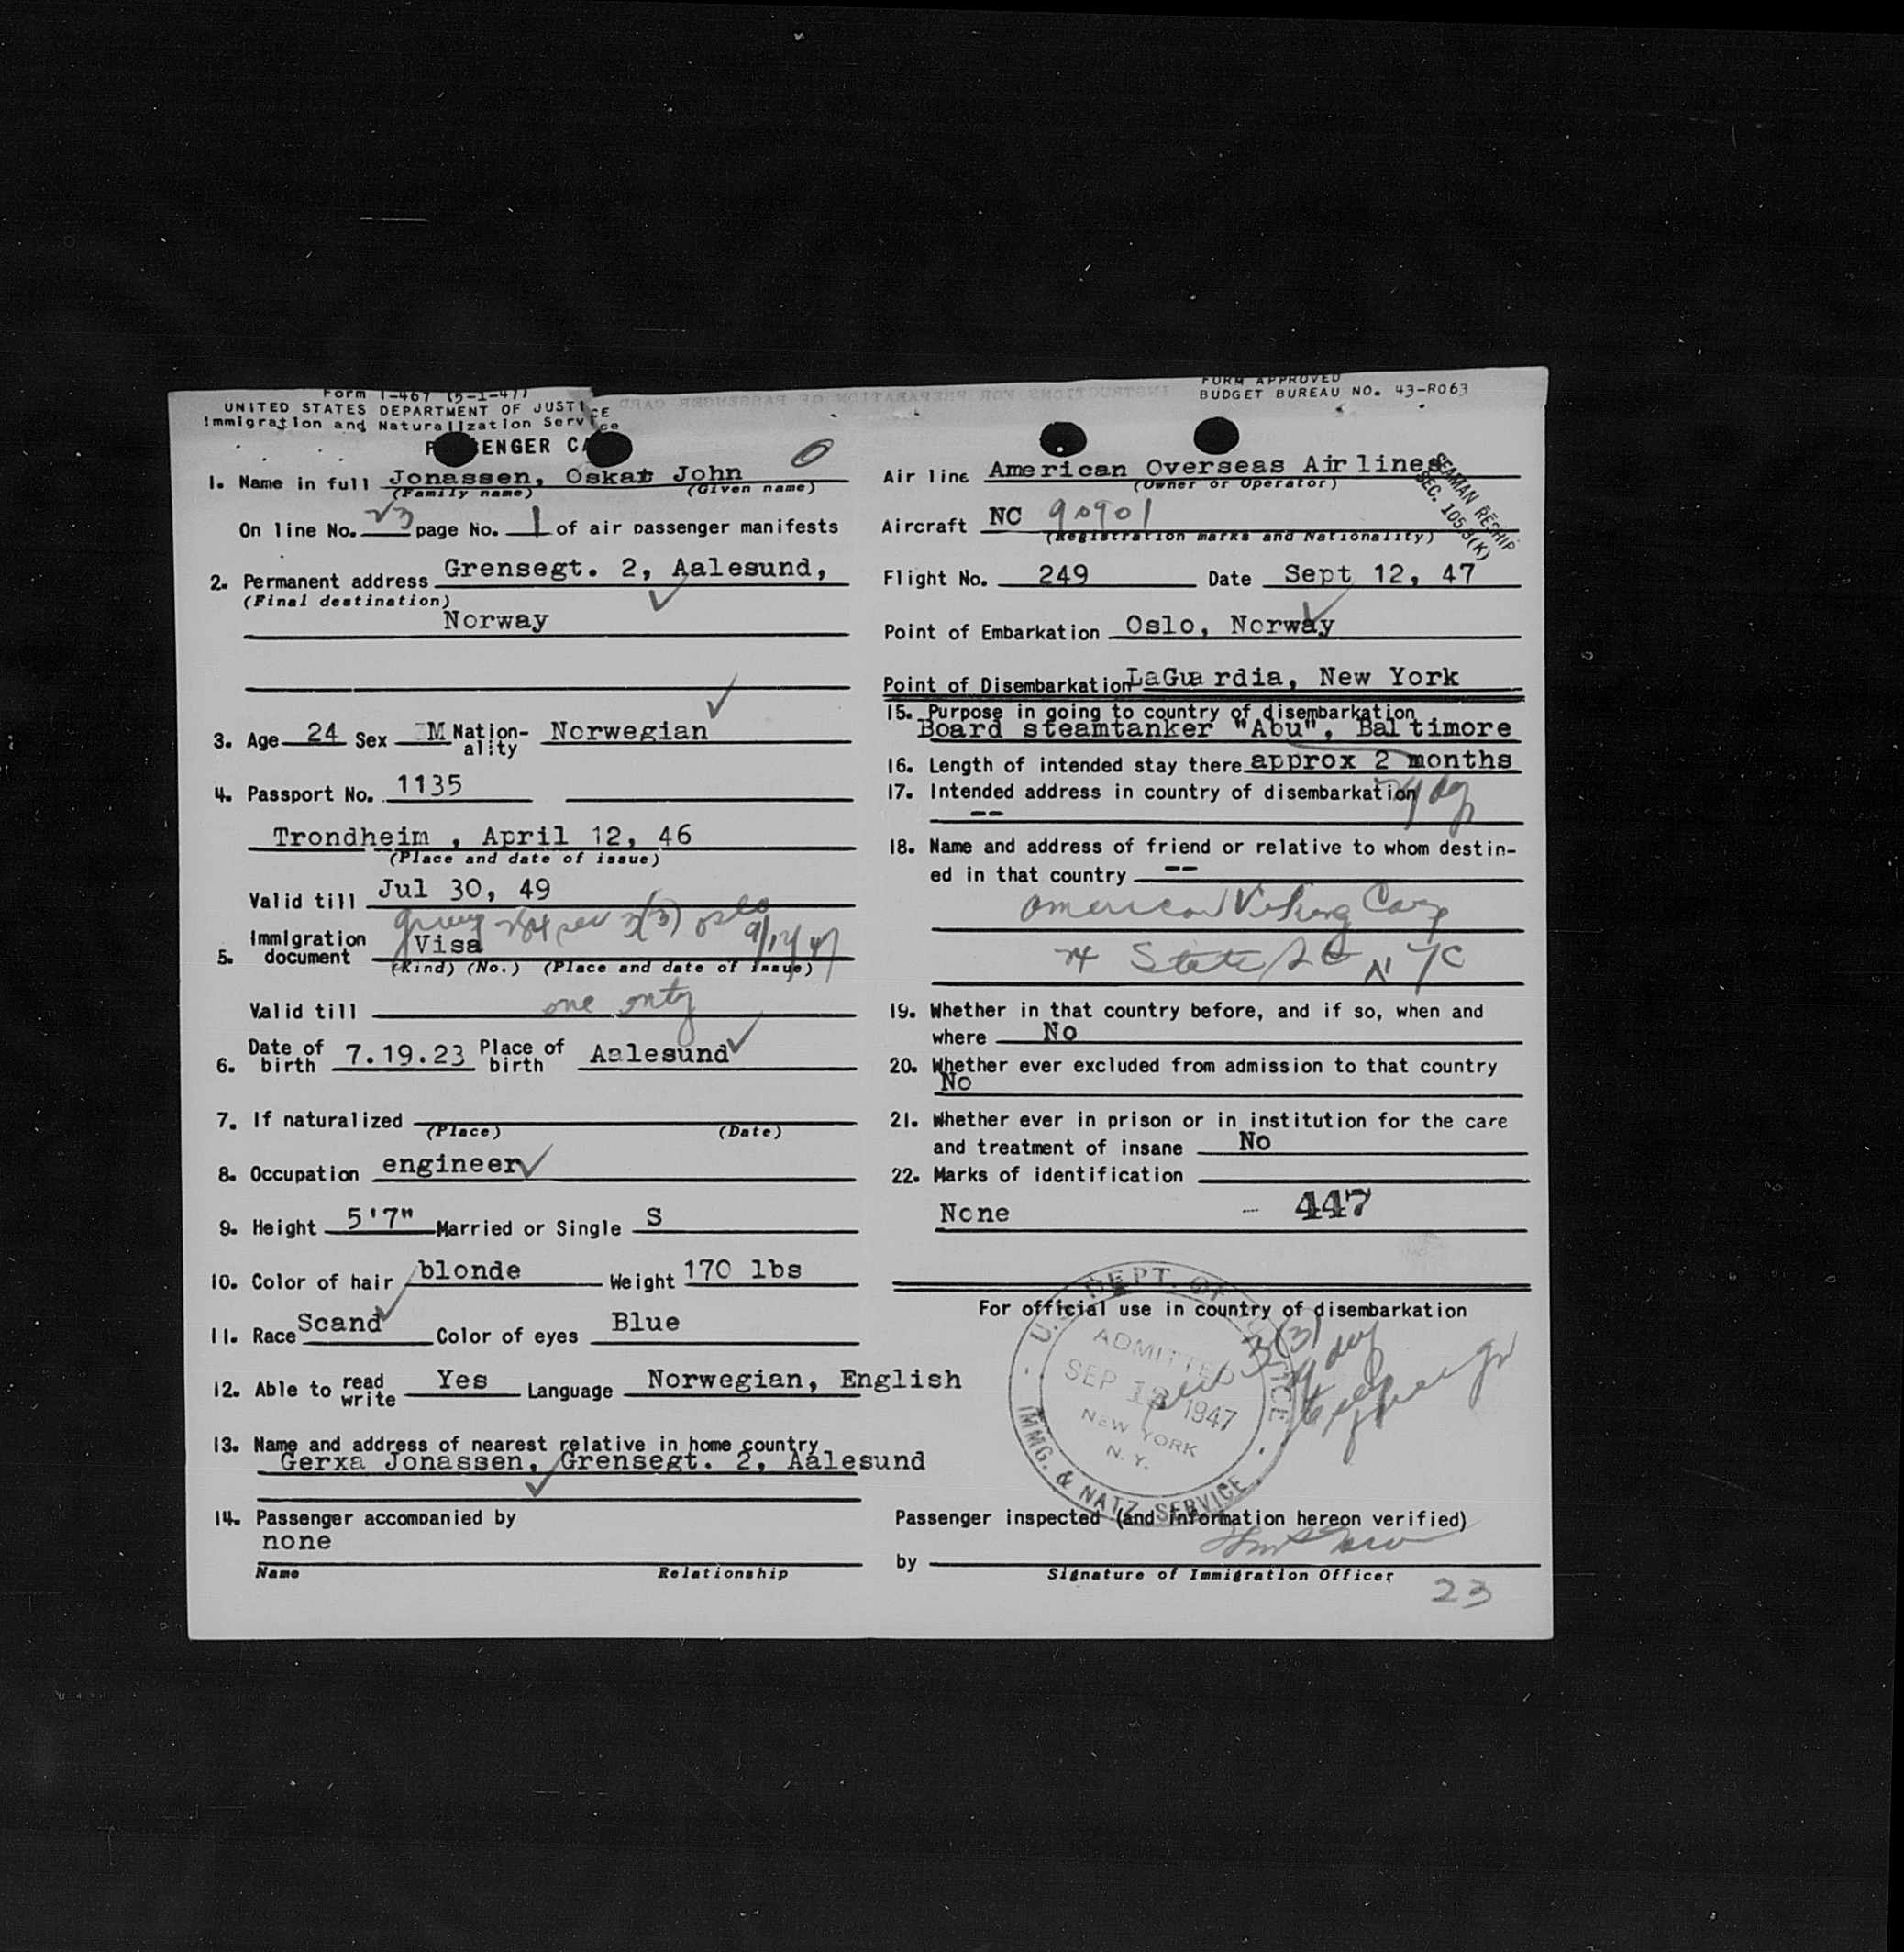 Form I-467 (5-1-47)
UNITED STATES DEPARTMENT OF JUSTICE
Immigration and Naturalization Service
PASSENGER CARD
1. Name in full Jonassen, Oskar John
(Family name) (Given name)
On line No. 23 page No. 1 of air passenger manifests
2. Permanent address Grensegt. 2, Aalesund,
(Final destination)
Norway
3. Age 24 Sex M Nation-ality Norwegian
4. Passport No. 1135
Trondheim , April 12, 46
(Place and date of issue)
Valid till Jul 30, 49
3(3) oslo
5. Immigration document Visa 9/12/47
(Kind) (No.) (Place and date of issue)
Valid till one
6. Date of birth 7.19.23 Place of birth Aalesund
7. If naturalized
(Place) (Date)
8. Occupation engineer
9. Height 5'7" Married or Single S
10. Color of hair blonde Weight 170 lbs
11. Race Scand Color of eyes Blue
12. Able to read write Yes Language Norwegian, English
13. Name and address of nearest relative in home country
Gerxa Jonassen, Grensegt. 2, Aalesund
14. Passenger accompanied by
none
Name Relationship
FORM APPROVED
BUDGET BUREAU NO. 43-R063
INSTRUCTIONS FOR PREPARATION OF PASSENGER CARD
Air line American Overseas Airlines
(Owner or Operator)
SEAMAN RESHIP
SEC. 105.3(K)
Aircraft NC 90901
(Registration marks and Nationality)
Flight No. 249 Date Sept 12, 47
Point of Embarkation Oslo, Norway
Point of Disembarkation LaGuardia, New York
15. Purpose in going to country of disembarkation
Board steamtanker "Abu", Baltimore
16. Length of intended stay there approx 2 months
17. Intended address in country of disembarkation
--
18. Name and address of friend or relative to whom destin-
ed in that country --
American Viking Corp
24 State St N Y C
19. Whether in that country before, and if so, when and
where No
20. Whether ever excluded from admission to that country
No
21. Whether ever in prison or in institution for the care
and treatment of insane No
22. Marks of identification
None - 447
For official use in country of disembarkation
U.S. DEPT. OF JUSTICE
ADMITTED
SEP 12 1947
NEW YORK
N. Y.
IMMG. & NATZ. SERVICE
3(3)
Passenger inspected (and information hereon verified)
by
Signature of Immigration Officer
23